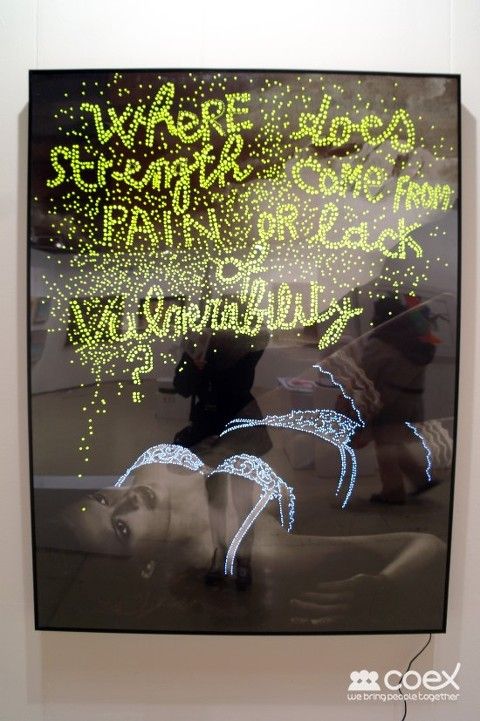 WheRE does
strength COME FROM
PAIN OR Lack
of
vulnerability
?
coex
we bring people together